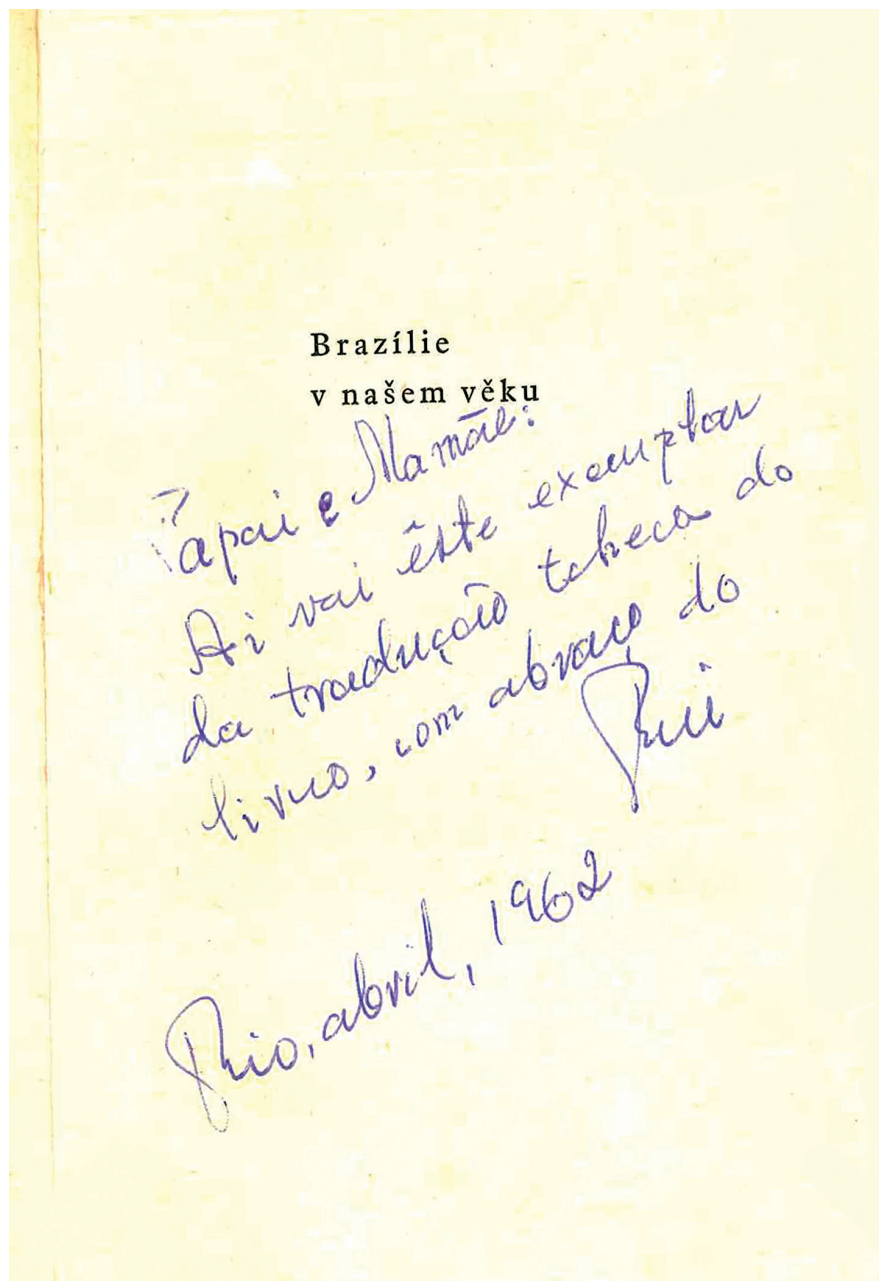 Brazílie
v našem věku
Papai e Mamãe:
Aí vai êste exemplar
da tradução tcheca do
livro, com abraço do
Rui
Rio, abril, 1962